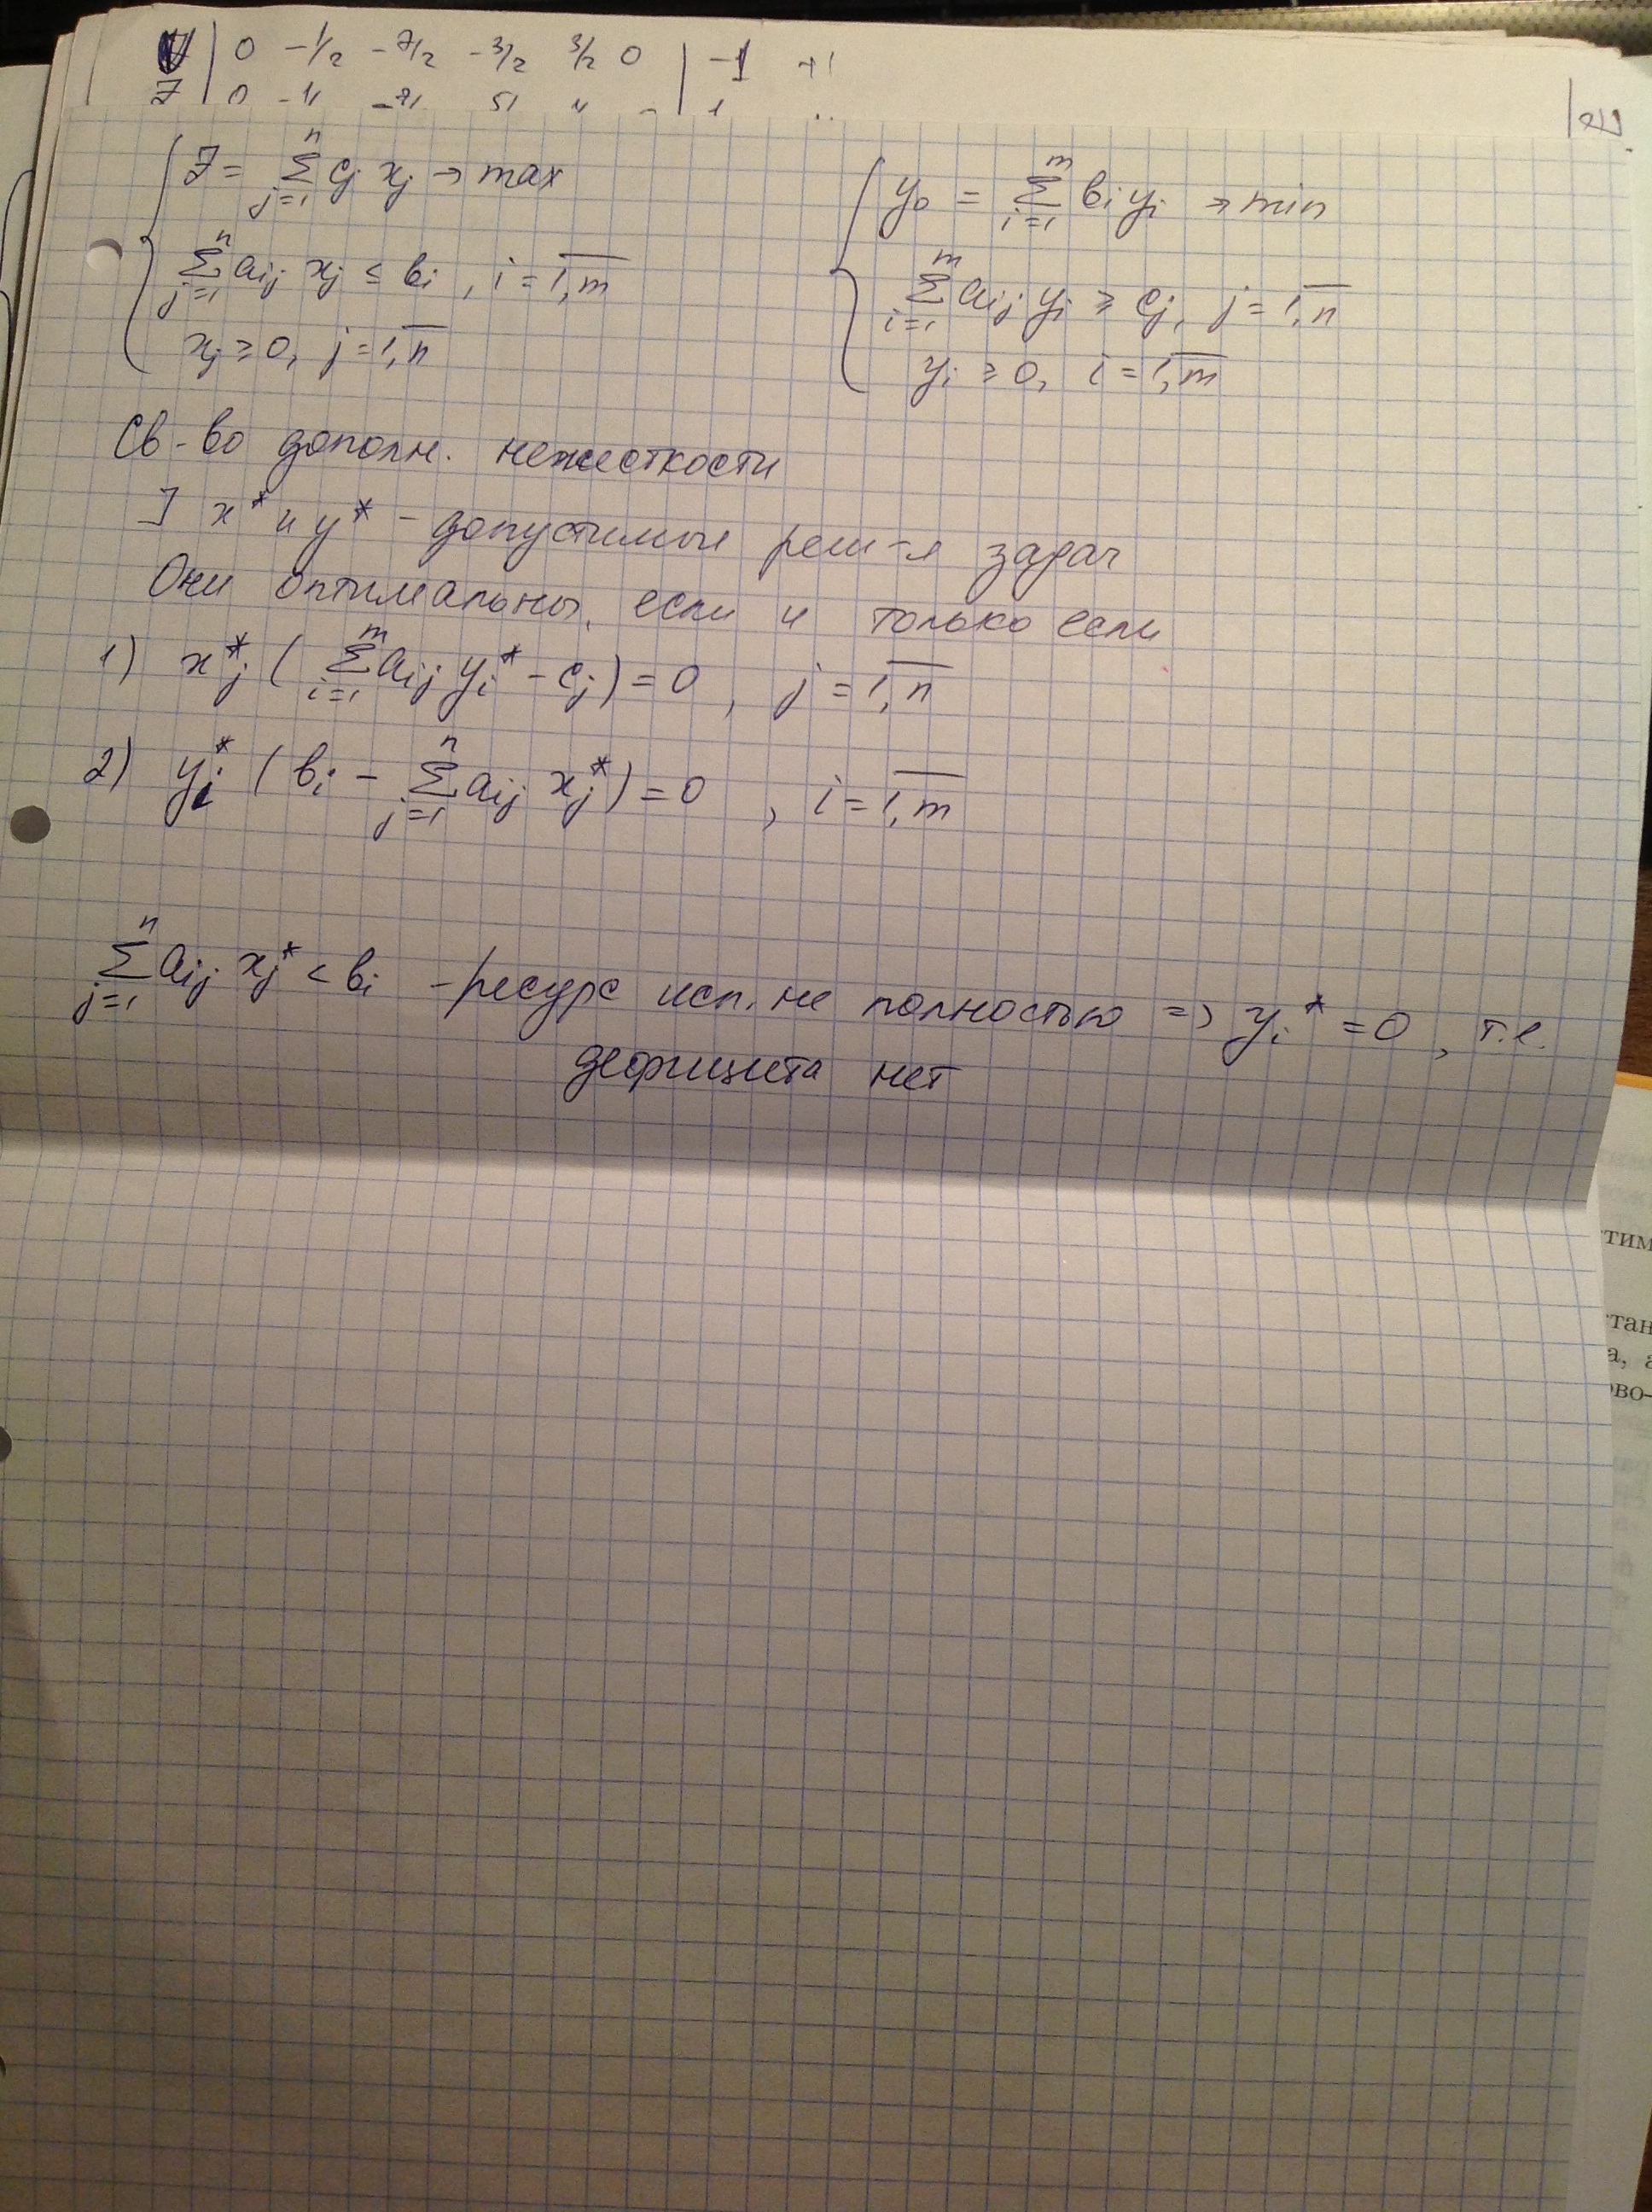 0 -1/2 -7/2 -3/2 3/2 0 | -1
Z = ∑_{j=1}^{n} c_j x_j → max
∑_{j=1}^{n} a_{ij} x_j ≤ b_i , i = \overline{1,m}
x_j ≥ 0, j = \overline{1,n}
y_0 = ∑_{i=1}^{m} b_i y_i → min
∑_{i=1}^{m} a_{ij} y_i ≥ c_j, j = \overline{1,n}
y_i ≥ 0, i = \overline{1,m}
Св-во дополн. нежесткости
] x* и y* - допустимые реш-я задач
Они оптимальны, если и только если
1) x*_j ( ∑_{i=1}^{m} a_{ij} y_i* - c_j ) = 0 , j = \overline{1,n}
2) y_i* ( b_i - ∑_{j=1}^{n} a_{ij} x_j* ) = 0 , i = \overline{1,m}
∑_{j=1}^{n} a_{ij} x_j* < b_i - ресурс исп. не полностью => y_i* = 0 , т.е.
дефицита нет